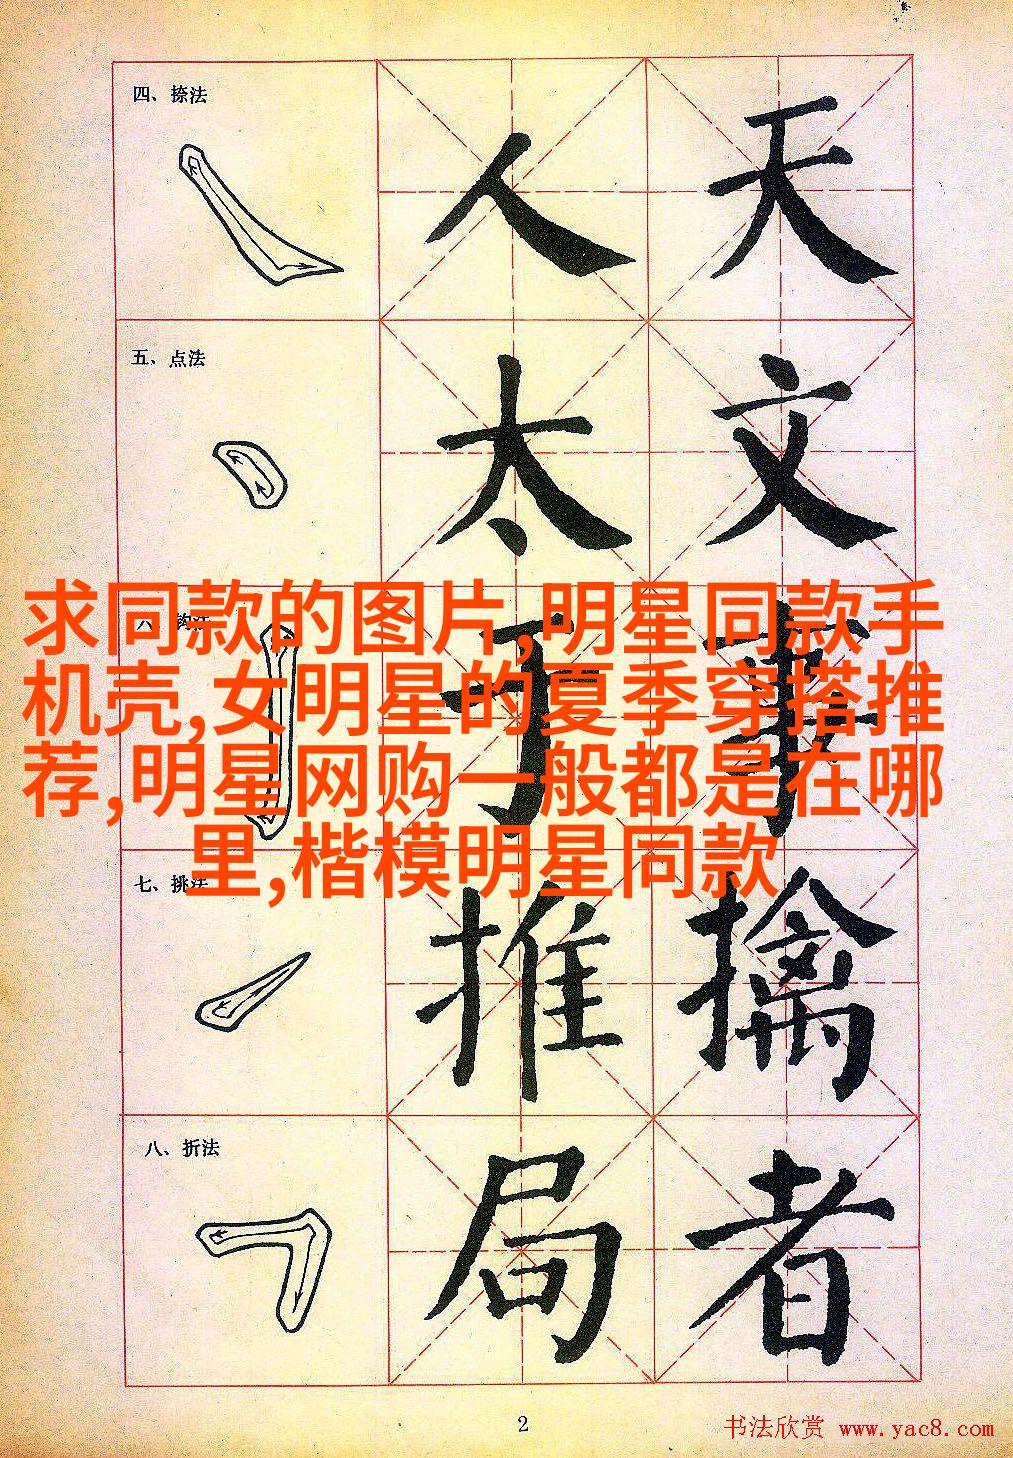 四、捺法
人 天
五、点法
太 文
求同款的图片,明星同款手
机壳,女明星的夏季穿搭推
荐,明星网购一般都是在哪
里,楷模明星同款
于 事
七、挑法
推 擒
八、折法
局 者
2
书法欣赏 www.yac8.com